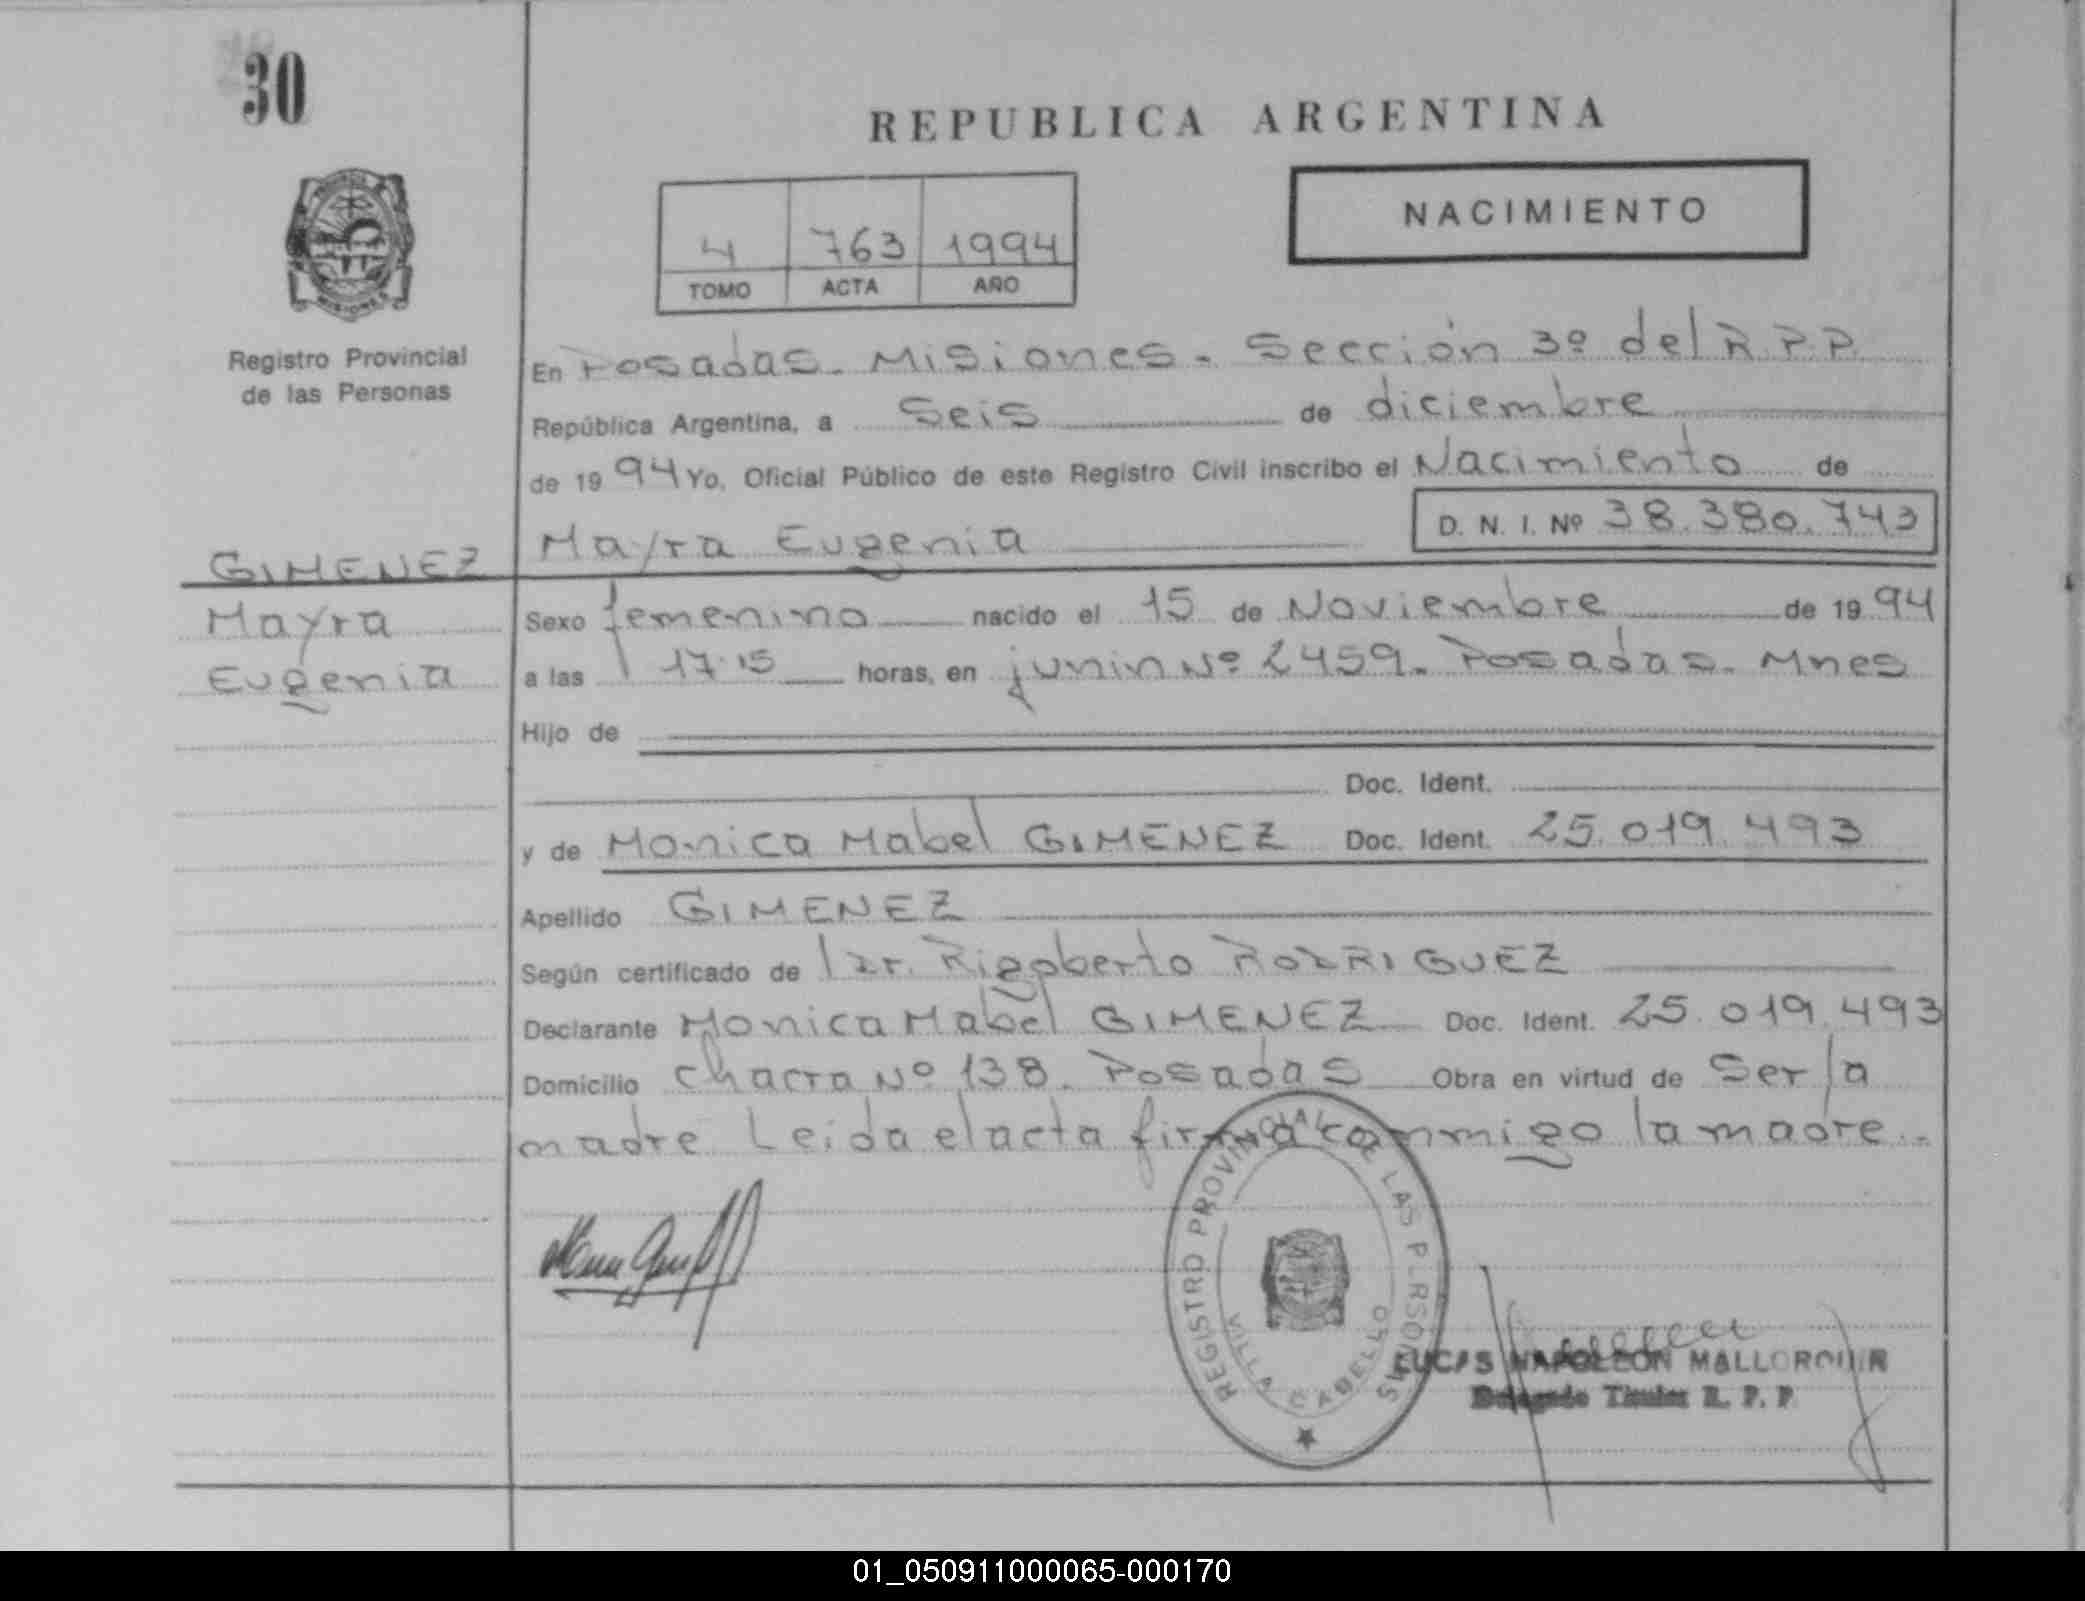 30
REPUBLICA ARGENTINA
NACIMIENTO
4 763 1994
TOMO ACTA AÑO
PROVINCIA
MISIONES
Registro Provincial
de las Personas
En Posadas. Misiones. Sección 3º del R.P.P.
República Argentina, a seis de diciembre
de 1994 Yo, Oficial Público de este Registro Civil inscribo el Nacimiento de
D. N. I. Nº 38.380.743
GIMENEZ Mayra Eugenia
Mayra Sexo femenino nacido el 15 de Noviembre de 1994
Eugenia a las 17.15 horas, en junin Nº 2459. Posadas. Mnes
Hijo de
Doc. Ident.
y de Monica Mabel GIMENEZ Doc. Ident. 25.019.493
Apellido GIMENEZ
Según certificado de Dr. Rigoberto RODRIGUEZ
Declarante Monica Mabel GIMENEZ Doc. Ident. 25.019.493
Domicilio chacra Nº 138. Posadas Obra en virtud de Ser la
madre Leida el acta firma conmigo la madre.
REGISTRO PROVINCIAL DE LAS PERSONAS
VILLA CABELLO
LUCAS NAPOLEON MALLORQUIN
Delegado Titular R. P. P.
01_050911000065-000170